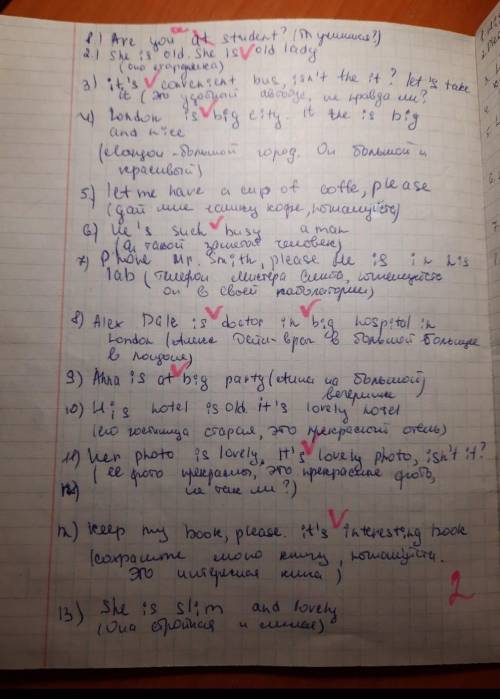 1.) Are you at student? (Ты учишься?)
2.) She is old. She is old lady
(она старушка)
3) it's convenient bus, isn't the it? let's take
it (Это удобный автобус, не правда ли?
4) London is big city. It the is big
and nice
(Лондон - большой город. Он большой и
красивый)
5) let me have a cup of coffe, please
(дай мне чашку кофе, пожалуйста)
6) He's such busy a man
(Он такой занятой человек)
7) Phone Mr. Smith, please He is in his
lab (телефон мистера Смита, пожалуйста
он в своей лаборатории)
8) Alex Dale is doctor in big hospital in
London (Алекс Дейл - врач в большой больнице
в Лондоне)
9) Anna is at big party (Анна на большой)
вечеринке
10) His hotel is old. it's lovely hotel
(его гостиница старая, это прекрасный отель)
11) Her photo is lovely, It's lovely photo, isn't it?
(ее фото прекрасны, это прекрасные фото,
не так ли?)
12) Keep my book, please. it's interesting book
(сохраните мою книгу, пожалуйста.
Это интересная книга)
13) She is slim and lovely
(Она стройная и милая)
2